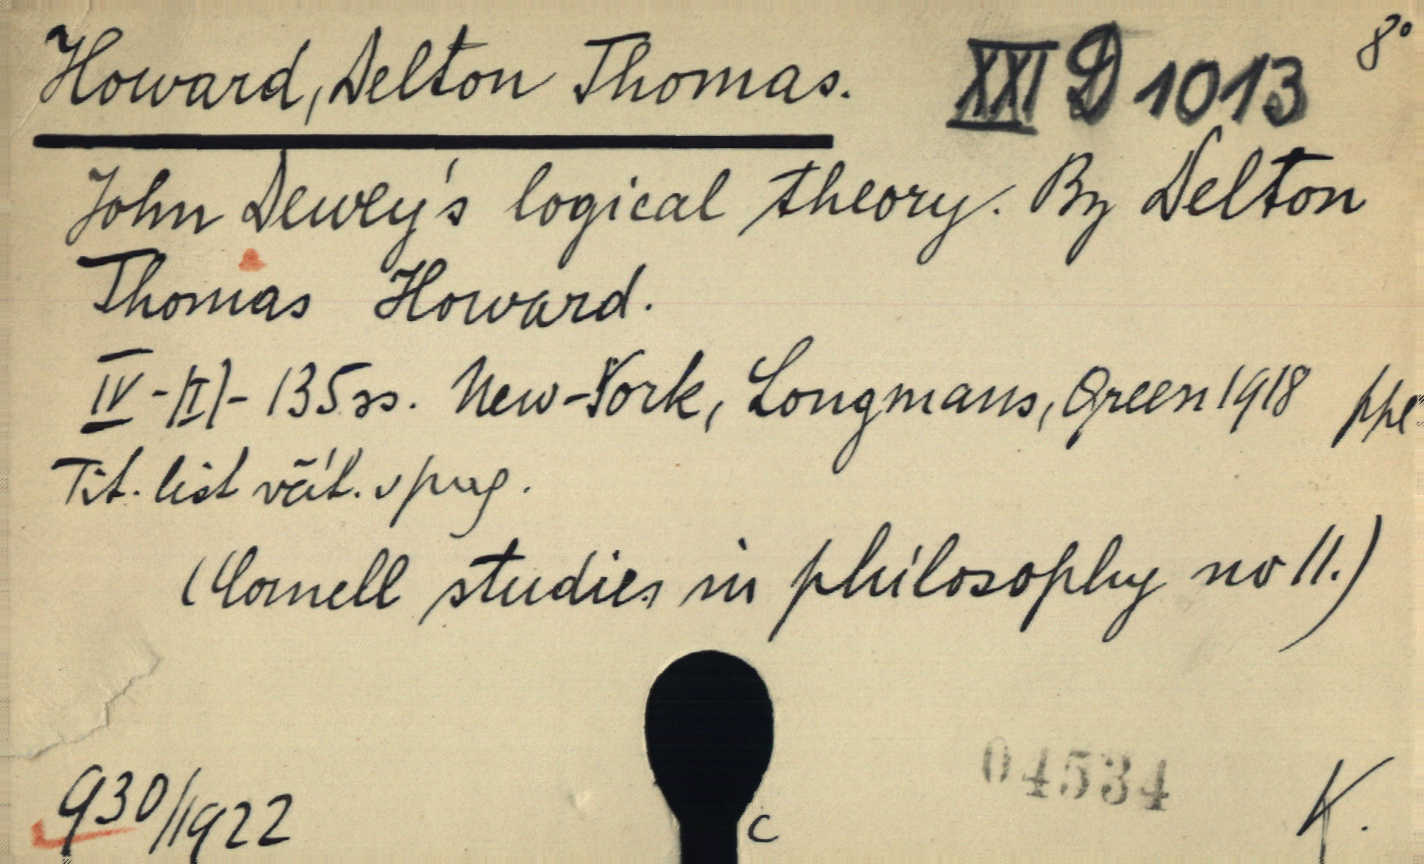 Howard, Delton Thomas. XXI D 1013 8°
John Dewey's logical theory. By Delton
Thomas Howard.
IV-[I]-135 ss. New-York, Longmans, Green 1918 ppl
Tit. list včít. v pag.
(Cornell studies in philosophy no 11.)
04534
930/1922 c K.